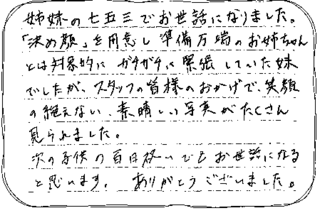 姉妹の七五三でお世話になりました。
「決め顔」を用意し準備万端のお姉ちゃん
とは対象的にガチガチに緊張していた妹
でしたが、スタッフの皆様のおかげで、笑顔
の絶えない、素晴しい写真がたくさん
見られました。
次の子供の百日祝いでもお世話になる
と思います。ありがとうございました。